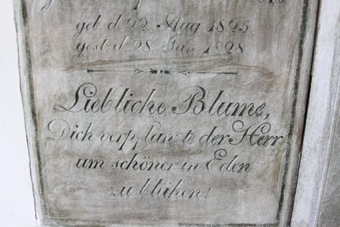 geb. d 22 Aug 1825
gest. d 28 Jan. 1828
Liebliche Blume,
Dich verpflanzte der Herr
um schöner in Eden
zu blühen!